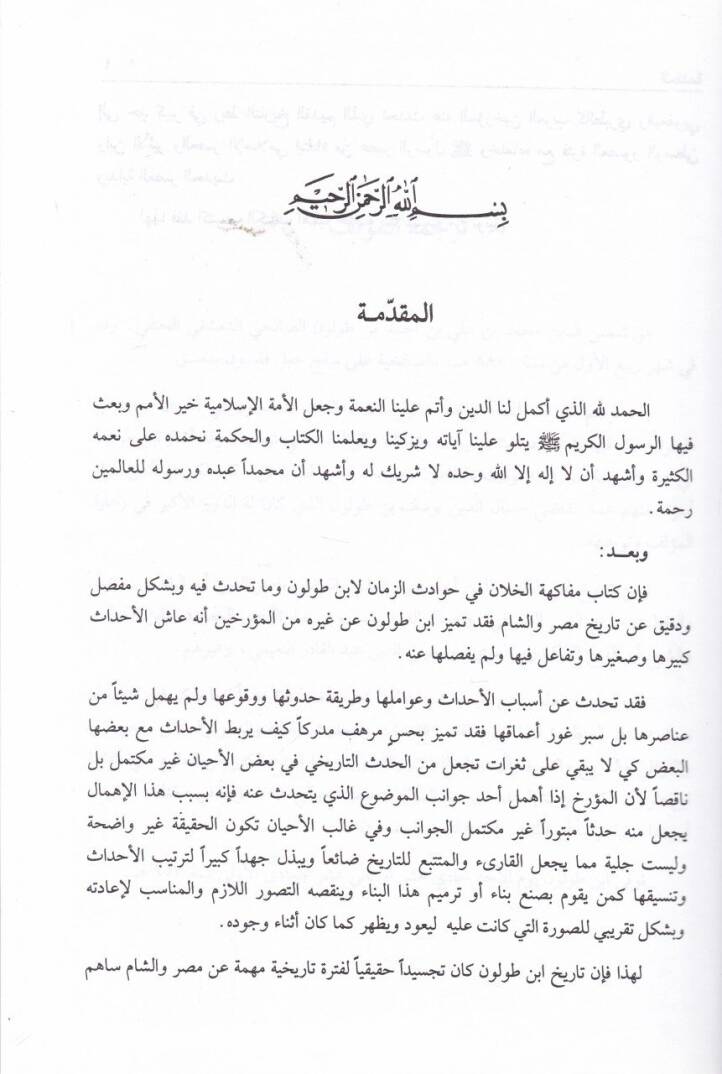 بسم الله الرحمن الرحيم
المقدّمـة
الحمد لله الذي أكمل لنا الدين وأتم علينا النعمة وجعل الأمة الإسلامية خير الأمم وبعث
فيها الرسول الكريم ﷺ يتلو علينا آياته ويزكينا ويعلمنا الكتاب والحكمة نحمده على نعمه
الكثيرة وأشهد أن لا إله إلا الله وحده لا شريك له وأشهد أن محمداً عبده ورسوله للعالمين
رحمة.
وبعـد:
فإن كتاب مفاكهة الخلان في حوادث الزمان لابن طولون وما تحدث فيه وبشكل مفصل
ودقيق عن تاريخ مصر والشام فقد تميز ابن طولون عن غيره من المؤرخين أنه عاش الأحداث
كبيرها وصغيرها وتفاعل فيها ولم يفصلها عنه.
فقد تحدث عن أسباب الأحداث وعواملها وطريقة حدوثها ووقوعها ولم يهمل شيئاً من
عناصرها بل سبر غور أعماقها فقد تميز بحس مرهف مدركاً كيف يربط الأحداث مع بعضها
البعض كي لا يبقي على ثغرات تجعل من الحدث التاريخي في بعض الأحيان غير مكتمل بل
ناقصاً لأن المؤرخ إذا أهمل أحد جوانب الموضوع الذي يتحدث عنه فإنه بسبب هذا الإهمال
يجعل منه حدثاً مبتوراً غير مكتمل الجوانب وفي غالب الأحيان تكون الحقيقة غير واضحة
وليست جلية مما يجعل القارىء والمتتبع للتاريخ ضائعاً ويبذل جهداً كبيراً لترتيب الأحداث
وتنسيقها كمن يقوم بصنع بناء أو ترميم هذا البناء وينقصه التصور اللازم والمناسب لإعادته
وبشكل تقريبي للصورة التي كانت عليه ليعود ويظهر كما كان أثناء وجوده.
لهذا فإن تاريخ ابن طولون كان تجسيداً حقيقياً لفترة تاريخية مهمة عن مصر والشام ساهم